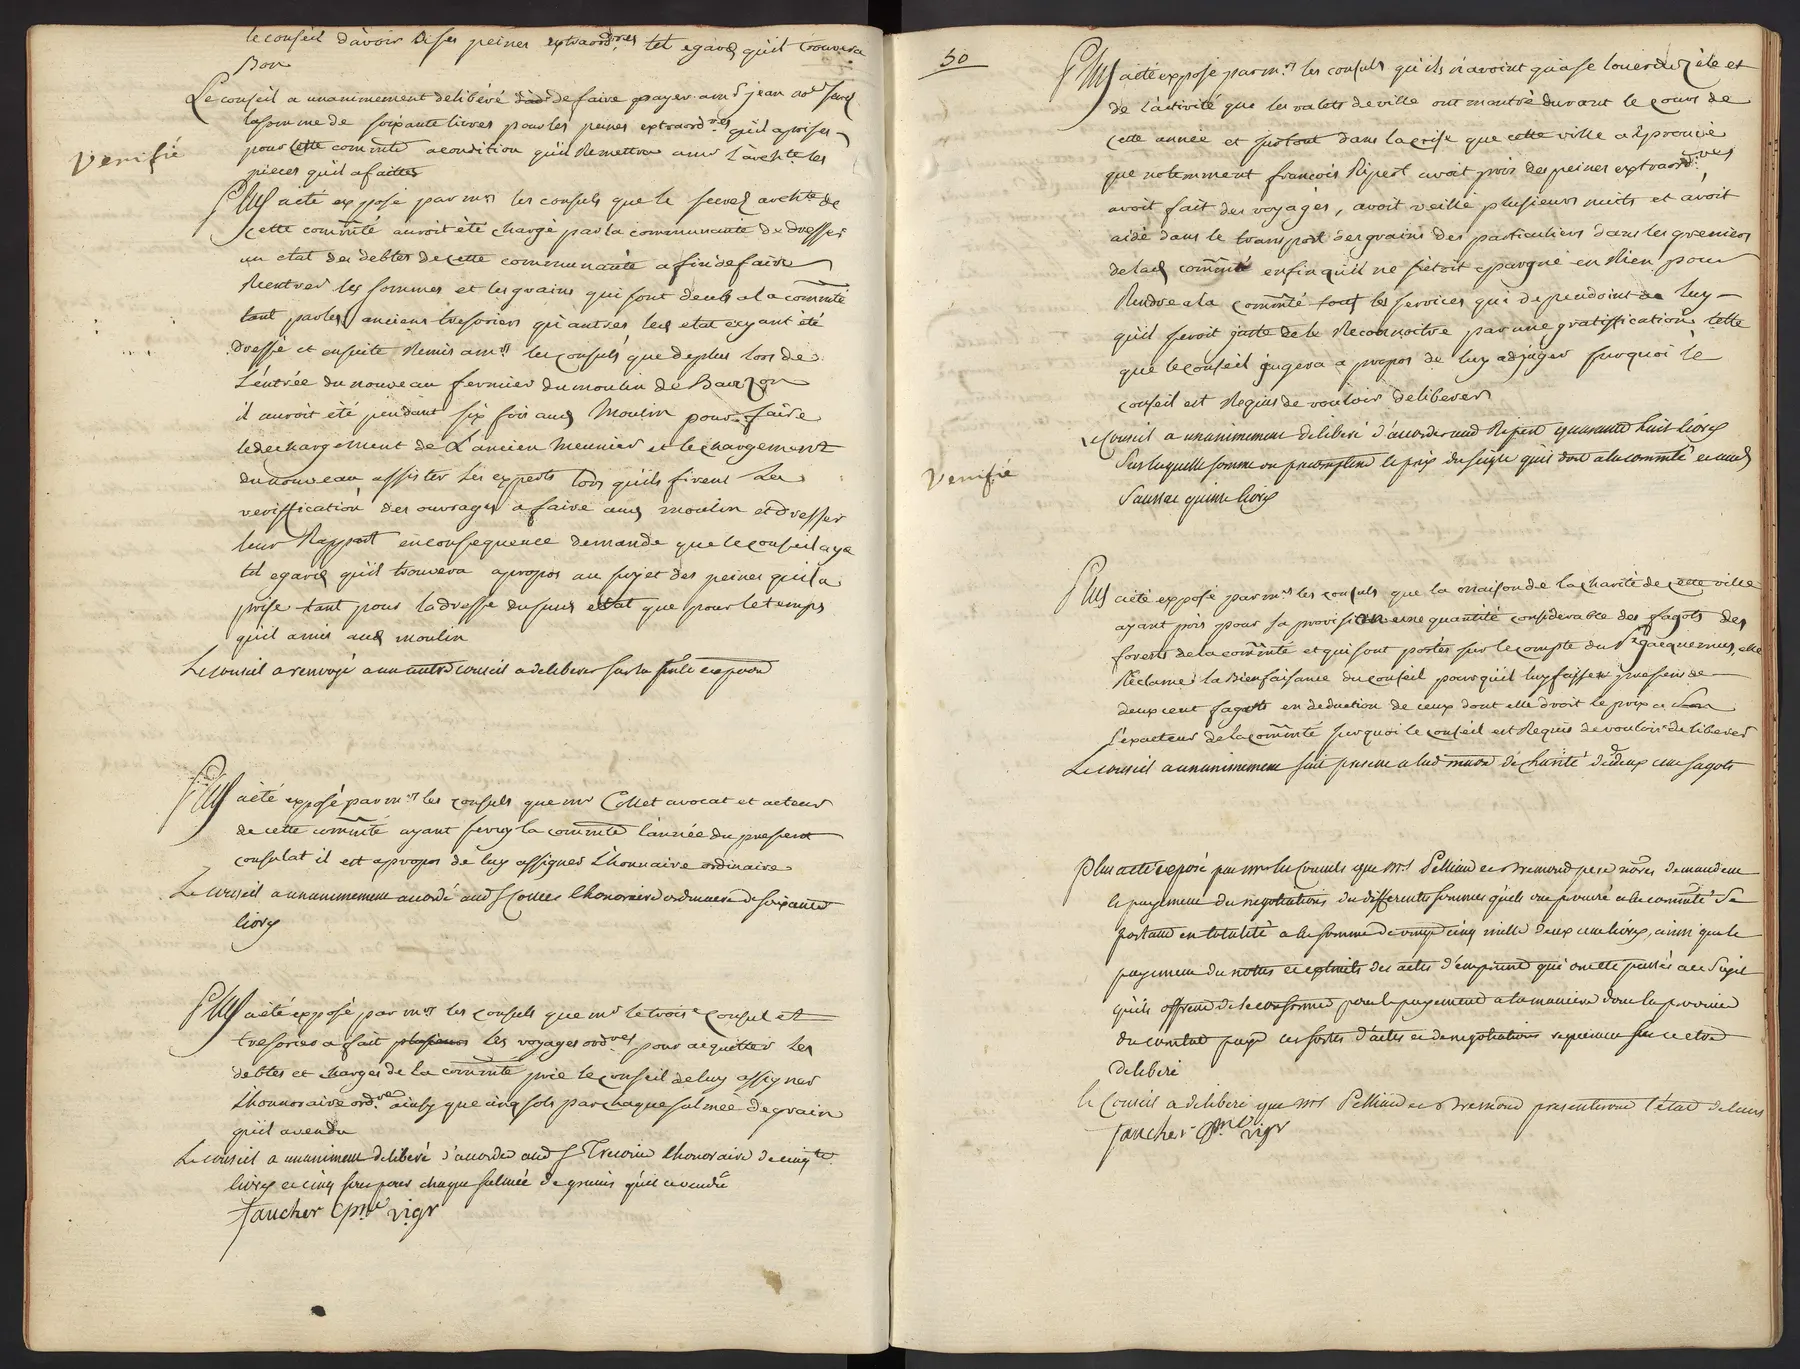 le conseil d'avoir de ses peines extraord.res tel egard qu'il trouvera
Bon
Le conseil a unanimement delibéré de faire payer a mr jean
la somme de soixante livres pour les peines extraord.res qu'il a prises
pour cette comm̃té a condition qu'il Remettra aux l'arch.te les
pieces qu'il a faittes
Verifié
Plus a été exposé par mrs les consuls que le archte de
cette comm̃té auroit été chargé par la communauté de dresser
un etat des debtes de cette communauté afin de faire
Rentrer les sommes et les grains qui sont deubs a la comm̃té
tant par les anciens tresoriers qu'autres led etat ayant été
dressé et ensuite Remis a mrs les consuls que de plus lors de
L'entrée du nouveau fermier du moulin de Bauzon
il auroit été pendant six fois aud Moulin pour faire
le dechargement de L'ancien Meunier et le chargement
du nouveau assister les experts lors qu'ils firent La
veriffication des ouvrages a faire aud moulin et dresser
leur Rapport en consequence demande que le conseil aye
tel egard qu'il trouvera apropos au sujet des peines qu'il a
prise tant pour la dresse du susd etat que pour le temps
qu'il a mis aud moulin
Le conseil a renvoyé a un autre conseil a deliberer sur la susd exposé
Plus a été exposé par mrs les consuls que mr Collet avocat et acteur
de cette comm̃té ayant servy la comm̃té l'année du present
consulat il est apropos de luy assigner L'honnaire ordinaire
Le conseil a unanimement accordé aud S Collet l'honoraire ordinaire de soixante
livres
Plus a été exposé par mrs les consuls que mr le trois.e consul et
tresorier a fait plusieurs les voyages ord.res pour acquitter les
debtes et charges de la comm̃té prie le conseil de luy assigner
L'honnoraire ord.re ainsy que cinq sols par chaque salmée de grain
qu'il a vendu
Le conseil a unanimem delibéré d'accorder aud S Tresorier l'honoraire de cinq.te
livres et cinq sous pour chaque salmée de grains qu'il a vendu
Faucher p.mr vigr
50
Plus a été exposé par mrs les consuls qu'ils n'avoint qu'a se louer du zèle et
de l'activité que les valets de ville ont montré durant le cours de
cette année et surtout dans la crise que cette ville a éprouvé
que notemment françois Ripert avoit pris des peines extraord.res
avoit fait des voyages, avoit veillé plusieurs nuits et avoit
aidé dans le transport des grains des particuliers dans les greniers
de lad comm̃té enfin qu'il ne s'étoit epargné en Rien pour
Rendre a la comm̃té tous les services qui dependoint de luy
qu'il seroit juste de le Reconnoitre par une gratiffication telle
que le conseil jugera a propos de luy adjuger surquoi le
conseil est Requis de vouloir deliberer
Le Conseil a unanimement deliberé d'accorder aud Ripert quarante huit livres
Sur laquelle somme on precomptera le prix du seigle qu'il doit a la comm̃té et aud
Sausse quinze livres
Verifié
Plus a été exposé par mrs les consuls que la maison de la charité de cette ville
ayant pris pour sa provision une quantité considerable des fagots des
forests de la comm̃té et qui sont portés sur le compte du Sr jacquemus, elle
Réclame la Bienfaisance du conseil pour qu'il luy fasse presens de
deux cent fagots en deduction de ceux dont elle droit le prix a
l'exacteur de la comm̃té surquoi le conseil est Requis de vouloir deliberer
Le conseil a unanimement fait present a lad maison de charité de deux cent fagots
Plus a été exposé par mrs les Consuls que Mrs Pelliard et Bremond pere nores demandent
le payement des negotiations des differentes sommes qu'ils ont procuré a la comm̃té Se
portant en totalité a la somme de vingt cinq mille deux cent livres, ainsi que le
payement des nottes et extraits des actes d'emprunt qui ont eté passés a ce sujet
qu'ils offrent de se conformer pour le payement a la maniere dont la province
du comtat paye ces sortes d'actes et de negotiations requierent sur ce etre
deliberé
le Conseil a deliberé que Mrs Pelliard et Bremond presenteront l'état de leurs
Faucher p.mr vigr